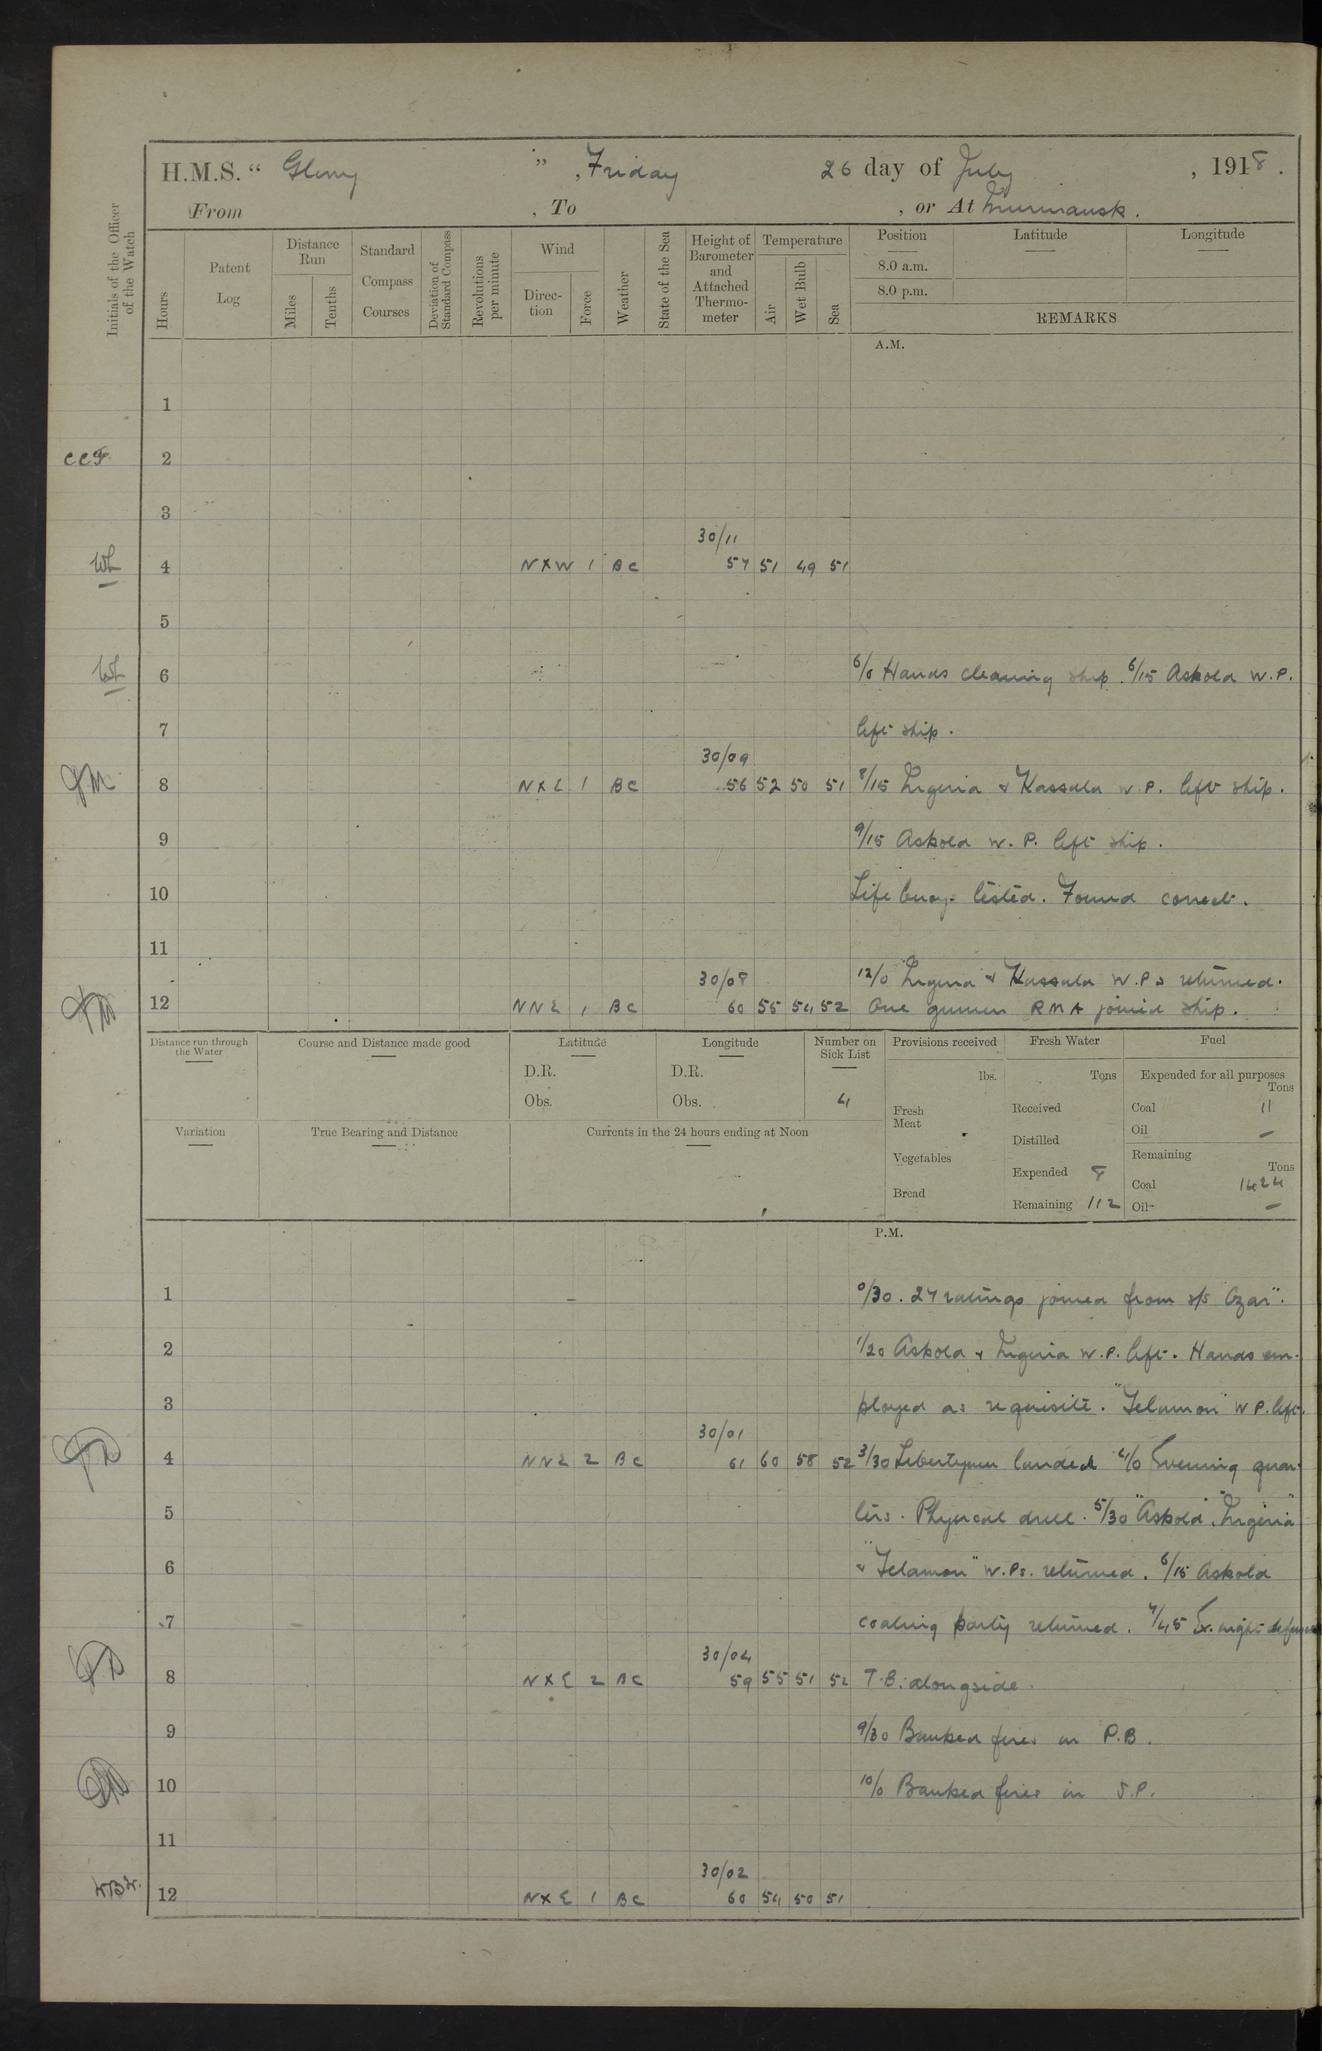 H.M.S. “ Glory ” , Friday 26 day of July , 1918 .
From , To , or At Murmansk .
Initials of the Officer of the Watch
Hours
Patent Log
Distance Run
Miles
Tenths
Standard Compass Courses
Deviation of Standard Compass
Revolutions per minute
Wind
Direction
Force
Weather
State of the Sea
Height of Barometer and Attached Thermometer
Temperature
Air
Wet Bulb
Sea
Position
8.0 a.m.
8.0 p.m.
Latitude
Longitude
REMARKS
A.M.
1
CCF 2
3
30/11
4 NXW 1 BC 57 51 49 51
5
6 6/0 Hands cleaning ship. 6/15 Askold W.P.
7 left ship.
30/09
8 NXE 1 BC 56 52 50 51 8/15 Nigeria & Kassala W.P. left ship.
9 9/15 Askold W.P. left ship.
10 Life buoy tested. Found correct.
11
30/08 12/0 Nigeria & Kassala W.Ps returned.
12 NNE 1 BC 60 55 54 52 One gunner RMA joined ship.
Distance run through the Water
Course and Distance made good
Latitude
D.R.
Obs.
Longitude
D.R.
Obs.
Number on Sick List
4
Provisions received
lbs.
Fresh Meat
Vegetables
Bread
Fresh Water
Tons
Received
Distilled
Expended 8
Remaining 112
Fuel
Expended for all purposes
Tons
Coal 11
Oil —
Remaining
Tons
Coal 1424
Oil —
Variation
True Bearing and Distance
Currents in the 24 hours ending at Noon
P.M.
1 0/30. 27 ratings joined from s/s Czar".
2 1/20 Askold & Nigeria W.P. left. Hands em-
3 ployed as requisite. "Telamon" W P. left.
30/01
4 NNE 2 BC 61 60 58 52 3/30 Libertymen landed 4/0 Evening quar-
5 ters. Physical drill. 5/30 "Askold", "Nigeria"
6 & "Telamon" W.Ps. returned. 6/15 Askold
7 coaling party returned. 7/45 Ex. night defence
30/04
8 NXE 2 BC 59 55 51 52 T.B. alongside.
9 9/30 Banked fires in P.B.
10 10/0 Banked fires in S.P.
11
30/02
12 NXE 1 BC 60 54 50 51